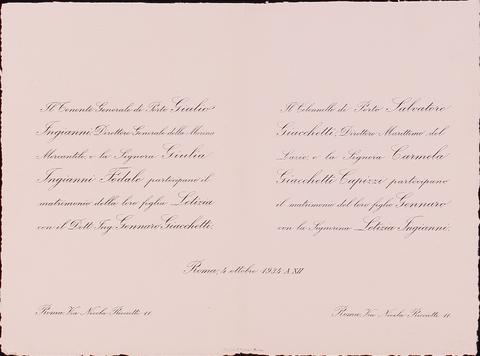 Il Tenente Generale di Porto Giulio
Ingianni, Direttore Generale della Marina
Mercantile, e la Signora Giulia
Ingianni Fodale partecipano il
matrimonio della loro figlia Letizia
con il Dott. Ing. Gennaro Giacchetti.
Il Colonnello di Porto Salvatore
Giacchetti, Direttore Marittimo del
Lazio, e la Signora Carmela
Giacchetti Capizzi partecipano
il matrimonio del loro figlio Gennaro
con la Signorina Letizia Ingianni.
Roma, 4 ottobre 1934 A. XII
Roma, Via Nicola 11
Roma, Via Nicola 11